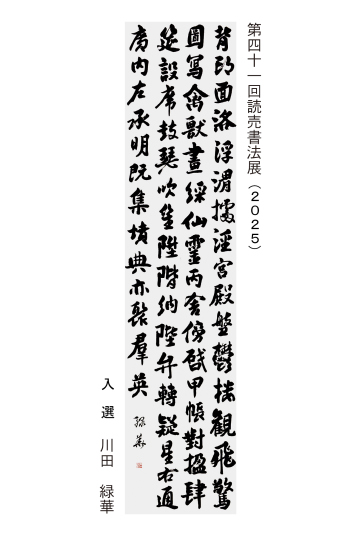 第四十一回読売書法展（2025）
背邙面洛浮渭據涇宮殿盤鬱楼觀飛驚
圖寫禽獸畫綵仙靈丙舍傍啓甲帳對楹肆
筵設席鼓瑟吹笙陞階納陛弁轉疑星右通
廣内左承明既集墳典亦聚羣英
緑華
入選 川田 緑華